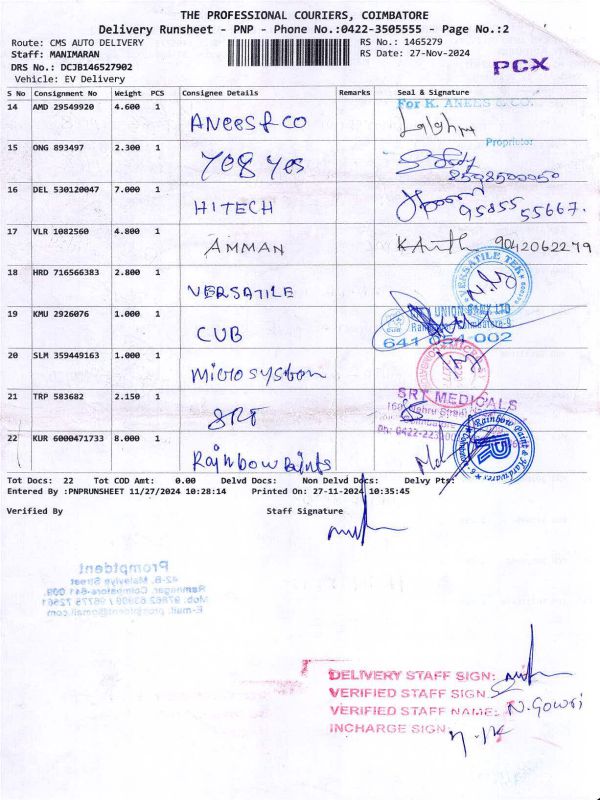 THE PROFESSIONAL COURIERS, COIMBATORE
Delivery Runsheet - PNP - Phone No.:0422-3505555 - Page No.:2
Route: CMS AUTO DELIVERY
Staff: MANIMARAN
DRS No.: DCJB146527902
Vehicle: EV Delivery
RS No.: 1465279
RS Date: 27-Nov-2024
PCX
S No Consignment No Weight PCS Consignee Details Remarks Seal & Signature
14 AMD 29549920 4.600 1 ANEES & CO For K. ANEES & CO.
Proprietor
15 ONG 893497 2.300 1 Yes Yes
16 DEL 530120047 7.000 1 HITECH 95855 55667.
17 VLR 1082560 4.800 1 AMMAN 9042062279
18 HRD 716566383 2.800 1 VERSATILE VERSATILE TEK
19 KMU 2926076 1.000 1 CUB UNION BANK LTD
641 002
20 SLM 359449163 1.000 1 Microsystem
21 TRP 583682 2.150 1 SRT SRT MEDICALS
22 KUR 6000471733 8.000 1 Rainbow Paints Rainbow Paint & Hardwares
Tot Docs: 22 Tot COD Amt: 0.00 Delvd Docs: Non Delvd Docs: Delvy Pts:
Entered By :PNPRUNSHEET 11/27/2024 10:28:14 Printed On: 27-11-2024 10:35:45
Verified By Staff Signature
Promptdent
42-B, Malaviya Street
Ramnagar, Coimbatore-641 009.
DELIVERY STAFF SIGN:
VERIFIED STAFF SIGN:
VERIFIED STAFF NAME: N. Gowri
INCHARGE SIGN: